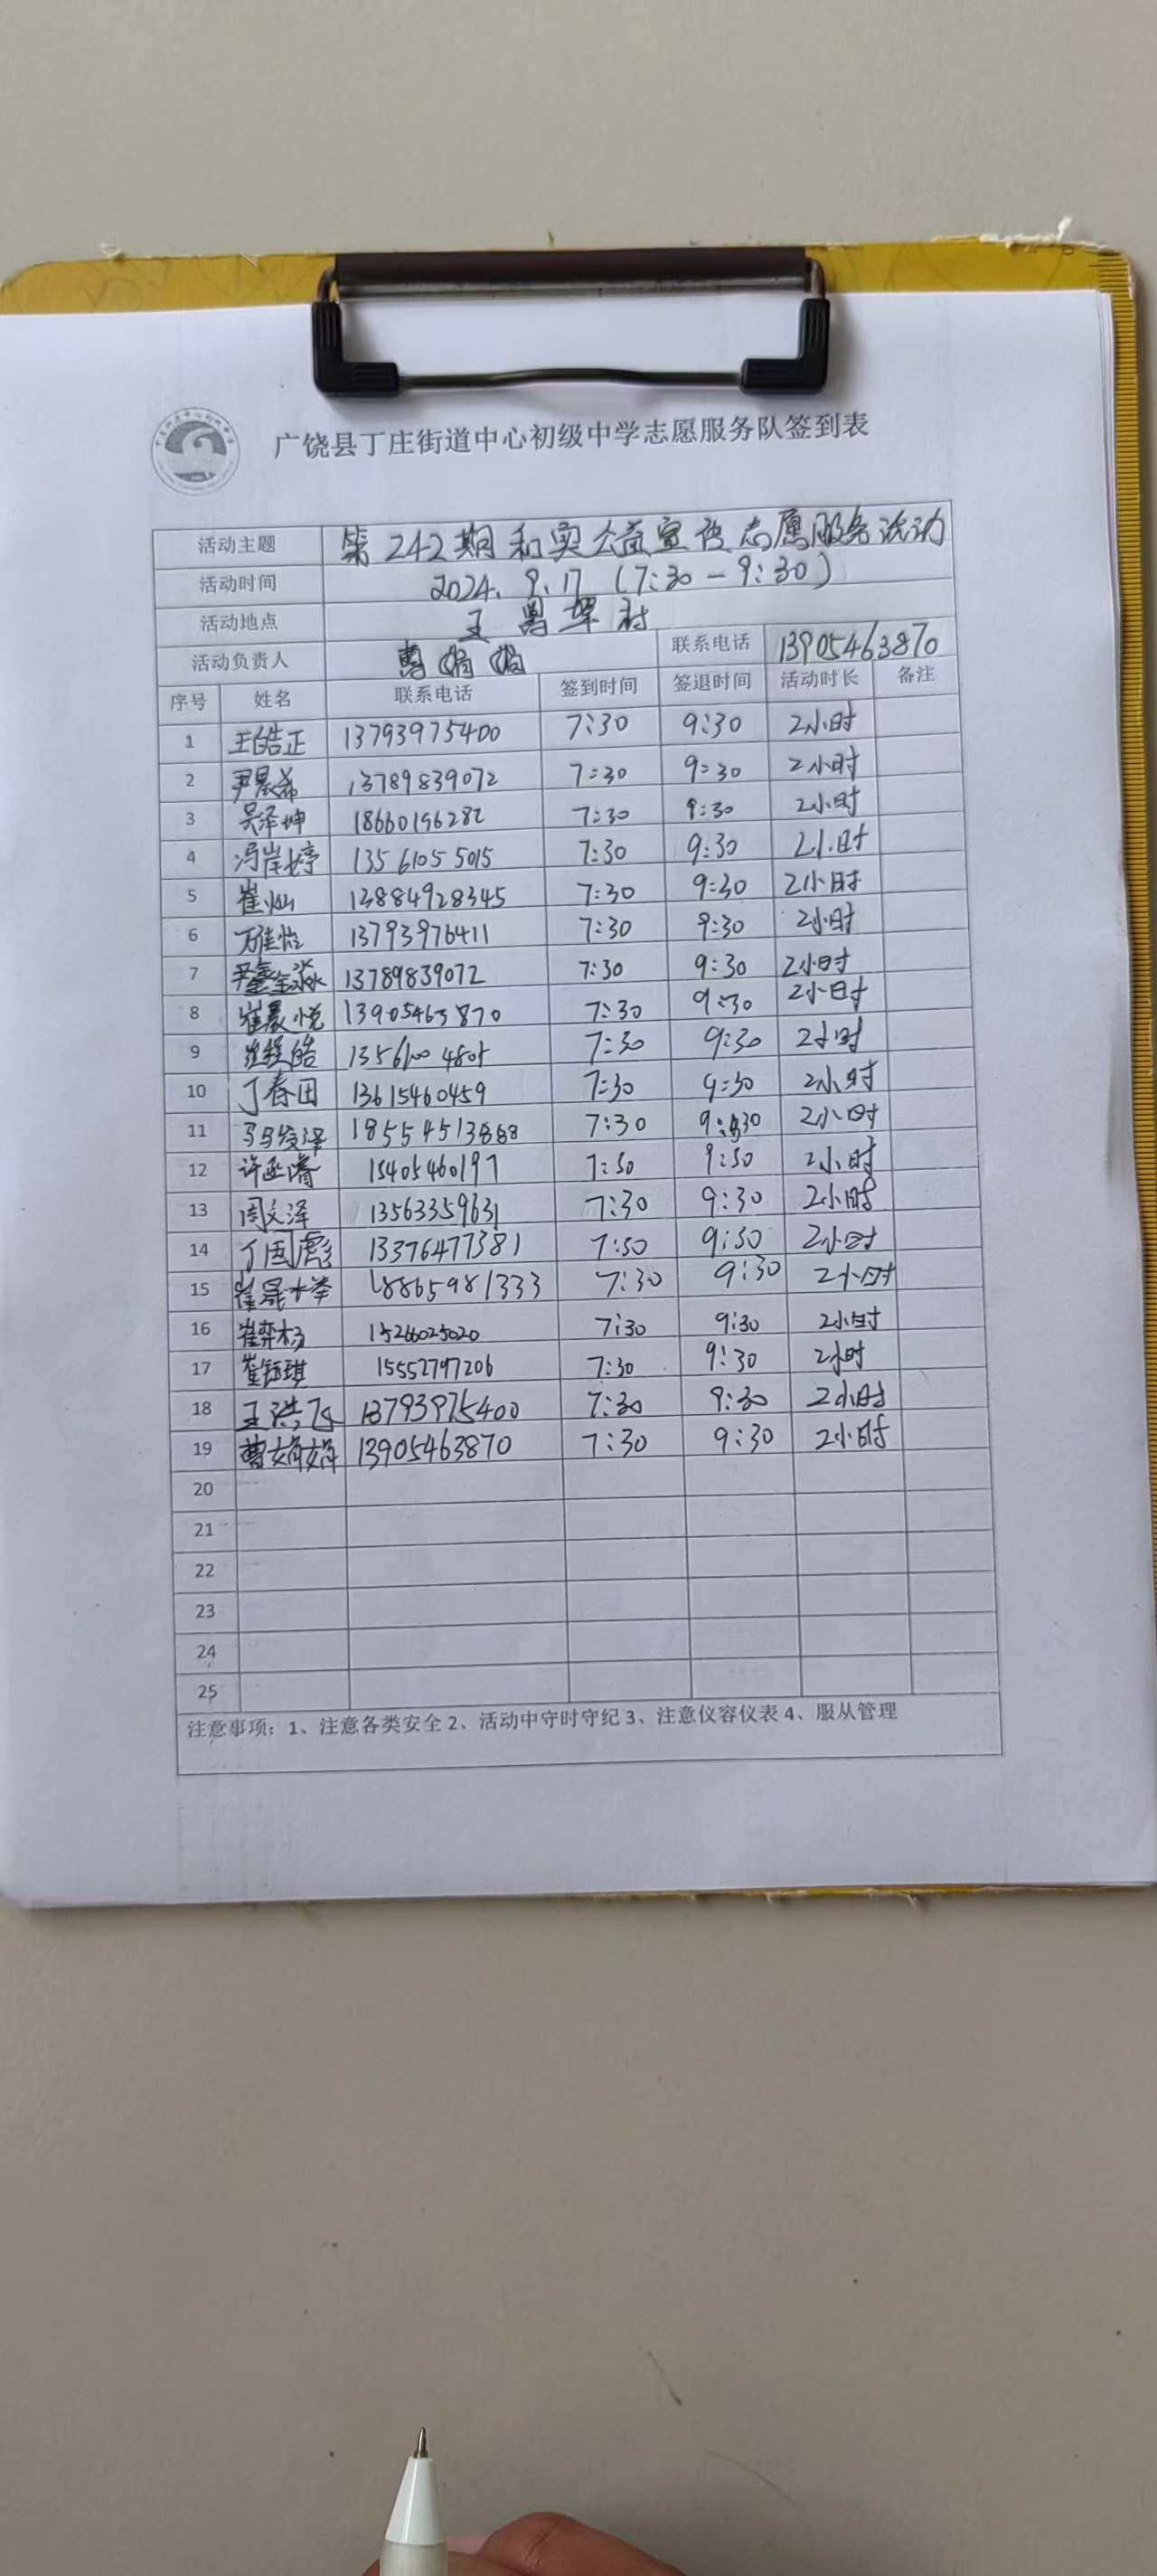 广饶县丁庄街道中心初级中学志愿服务队签到表
活动主题 第242期和实公益宣传志愿服务活动
活动时间 2024.9.17 (7:30-9:30)
活动地点 王 村
活动负责人 曹娟娟 联系电话 13905463870
序号 姓名 联系电话 签到时间 签退时间 活动时长 备注
1 王皓正 13793975400 7:30 9:30 2小时
2 尹晨希 13789839072 7:30 9:30 2小时
3 吴泽坤 18660196282 7:30 9:30 2小时
4 冯岸婷 13561055015 7:30 9:30 2小时
5 崔灿 13884928345 7:30 9:30 2小时
6 万佳怡 13793976411 7:30 9:30 2小时
7 尹鑫淼 13789839072 7:30 9:30 2小时
8 崔晨悦 13905463870 7:30 9:30 2小时
9 7:30 9:30 2小时
10 丁春田 13615460459 7:30 9:30 2小时
11 18554513888 7:30 9:30 2小时
12 许丞睿 15405460197 7:30 9:30 2小时
13 周文泽 13563359631 7:30 9:30 2小时
14 丁国彪 13376477381 7:30 9:30 2小时
15 18865981333 7:30 9:30 2小时
16 崔弈杨 15266025020 7:30 9:30 2小时
17 崔钰琪 15552797206 7:30 9:30 2小时
18 王洪飞 13793975400 7:30 9:30 2小时
19 曹娟娟 13905463870 7:30 9:30 2小时
20
21
22
23
24
25
注意事项：1、注意各类安全 2、活动中守时守纪 3、注意仪容仪表 4、服从管理